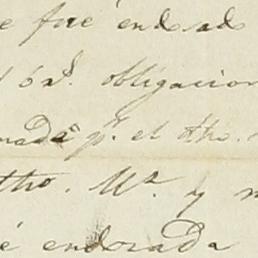 e fué endosado
ó al. obligacion
nada pr. el dho.
dho. Mª. y
é endosada